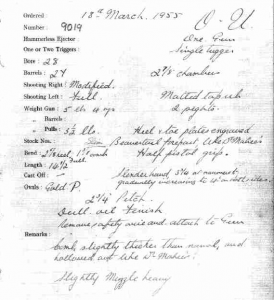 Ordered: 18th March. 1955
O-U
Number: 9019
Hammerless Ejector One Gun
One or Two Triggers: Single trigger
Bore: 28
Barrels: 27 2 7/8 chamber
Shooting Right: Modified.
Shooting Left: Full Matted top rib
Weight Gun: 5 lbs 4 ozs 2 sights.
" Barrels:
" Pulls: lbs. Heel & toe plates engraved
Stock Nos. Beavertail forepart, like Dr
Bend: Half pistol grip.
Length: 14 1/2
Cast Off: Slender hand at narrowest
gradually increasing to
Ovals: Gold P.
2 1/4 Pitch.
Dull oil finish
Remove safety wire and attach to Gun
Remarks: Comb slightly thicker than normal, and
hollowed out like Dr
Slightly Muzzle heavy